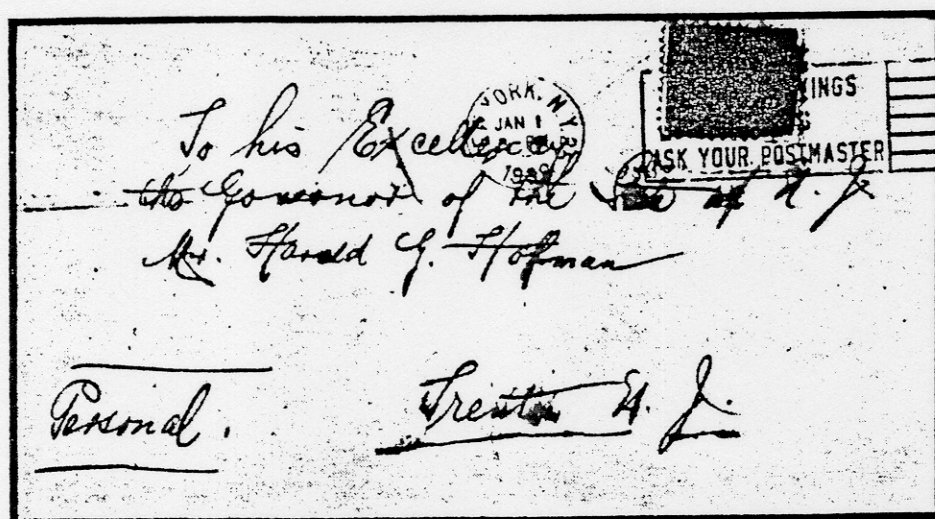 YORK, N.Y.
JAN 1
INGS
ASK YOUR POSTMASTER
To his Excellency
the Governor of the State of N. J.
Mr. Harold G. Hofman
Personal.
Trenton N. J.